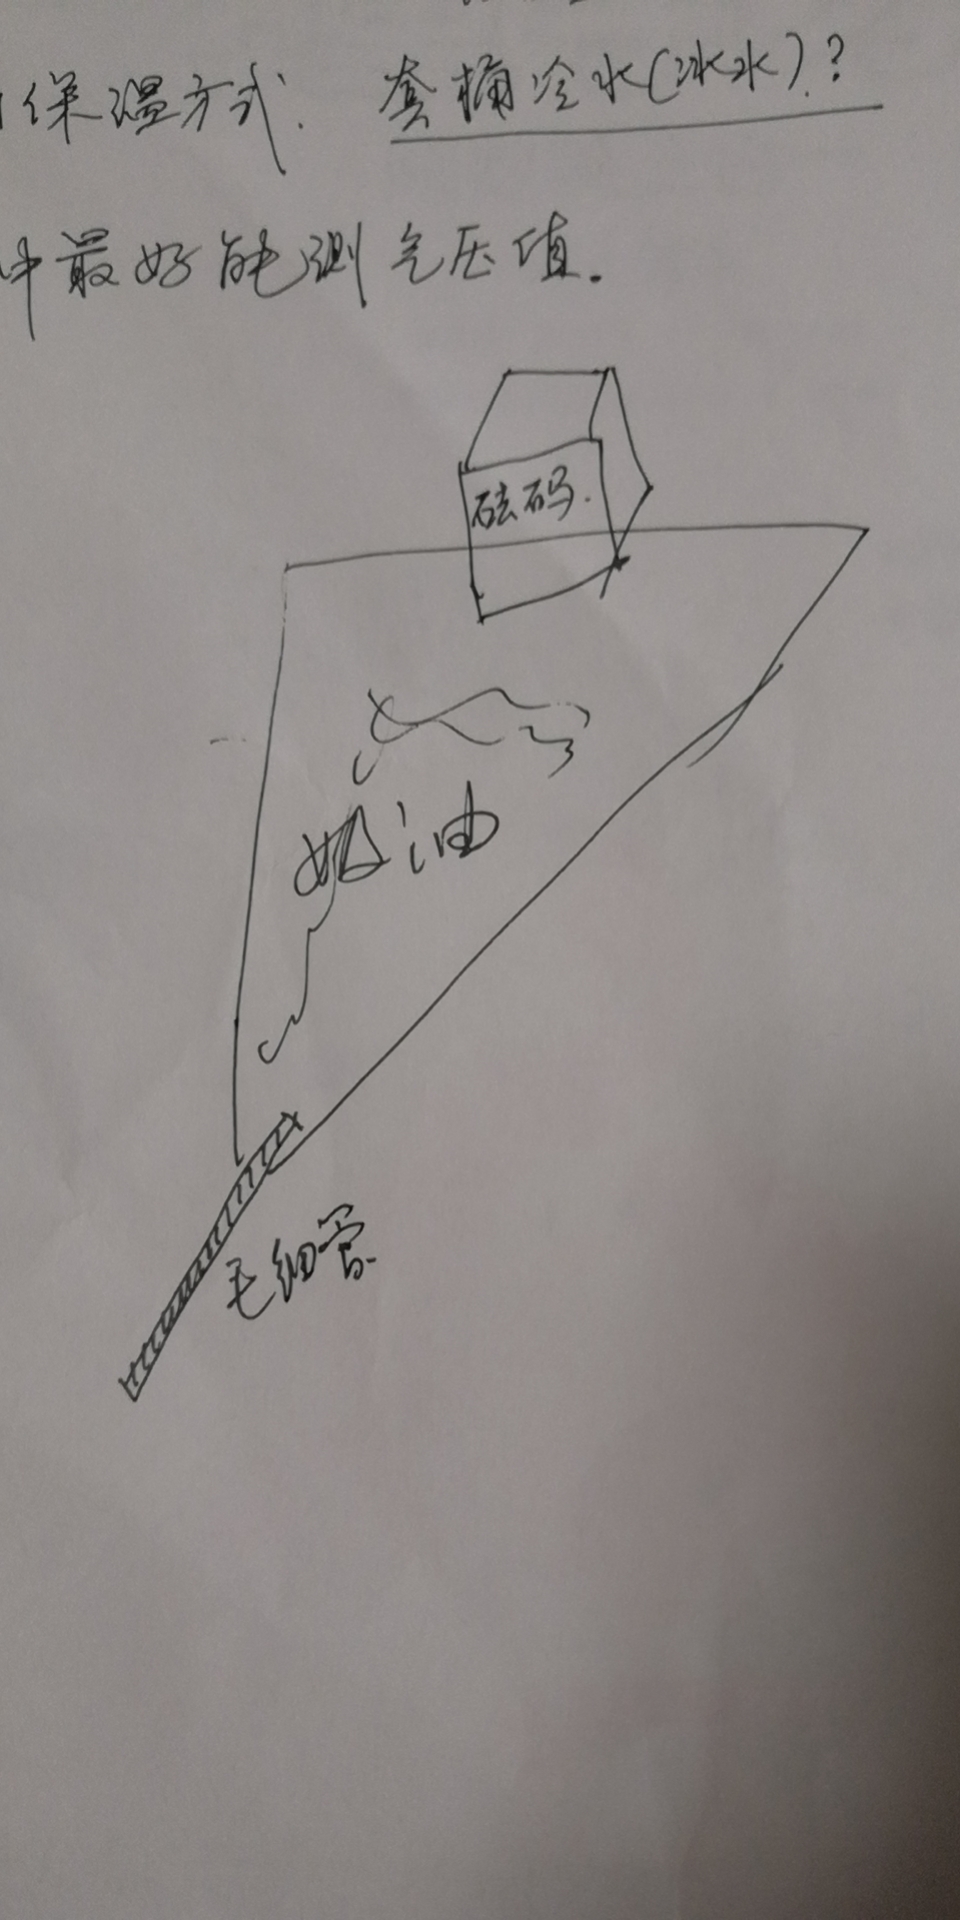 保温方式: 套桶冷水(冰水)?
中最好能测气压值.
砝码.
奶油
毛细管